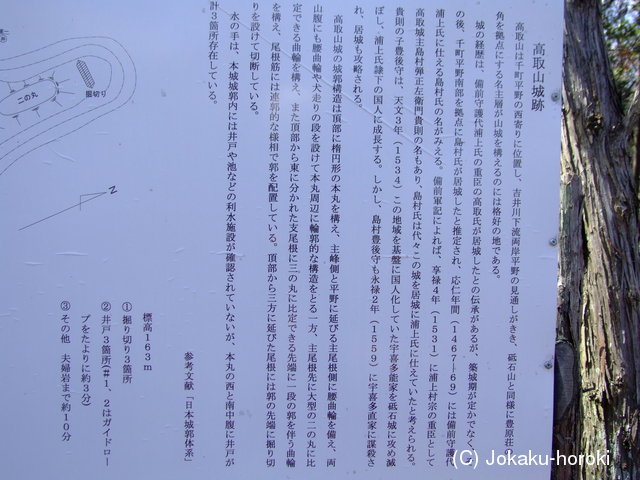 高取山城跡
高取山は千町平野の西寄りに位置し、吉井川下流両岸平野の見通しがきき、砥石山と同様に豊原荘
角を拠点にする名主層が山城を構えるのには格好の地である。
城の経歴は、備前守護代浦上氏の重臣の高取氏が居城したとの伝承があるが、築城期が定かでなく、
の後、千町平野南部を拠点に島村氏が居城したと推定され、応仁年間（1467―69）には備前守護代
浦上氏に仕える島村氏の名がみえる。備前軍記によれば、享禄4年（1531）に浦上村宗の重臣として
高取城主島村弾正左衛門貴則の名もあり、島村氏は代々この城を居城に浦上氏に仕えていたと考えられる。
貴則の子豊後守は、天文3年（1534）この地域を基盤に国人化していた宇喜多能家を砥石城に攻め滅
ぼし、浦上氏隷下の国人に成長する。しかし、島村豊後守も永禄2年（1559）に宇喜多直家に謀殺さ
れ、居城も攻略される。
高取山城の城郭構造は頂部に楕円形の本丸を構え、主峰側と平野に延びる主尾根側に腰曲輪を備え、両
山腹にも腰曲輪や犬走りの段を設けて本丸周辺に輪郭的な構造をとる一方、主尾根先に大型の二の丸に比
定できる曲輪を構え、また頂部から東に分かれた支尾根に三の丸に比定できる先端に一段の郭を伴う曲輪
を構え、尾根筋には連郭的な様相で郭を配置している。頂部から三方に延びた尾根には郭の先端に掘り切
りを設けて切断している。
水の手は、本城城郭内には井戸や池などの利水施設が確認されていないが、本丸の西と南中腹に井戸が
計3箇所存在している。
参考文献「日本城郭体系」
標高163m
① 掘り切り3箇所
② 井戸3箇所（#1、2はガイドロー
プをたよりに約3分）
③ その他 夫婦岩まで約10分
二の丸
掘切り
N
(C) Jokaku-horoki